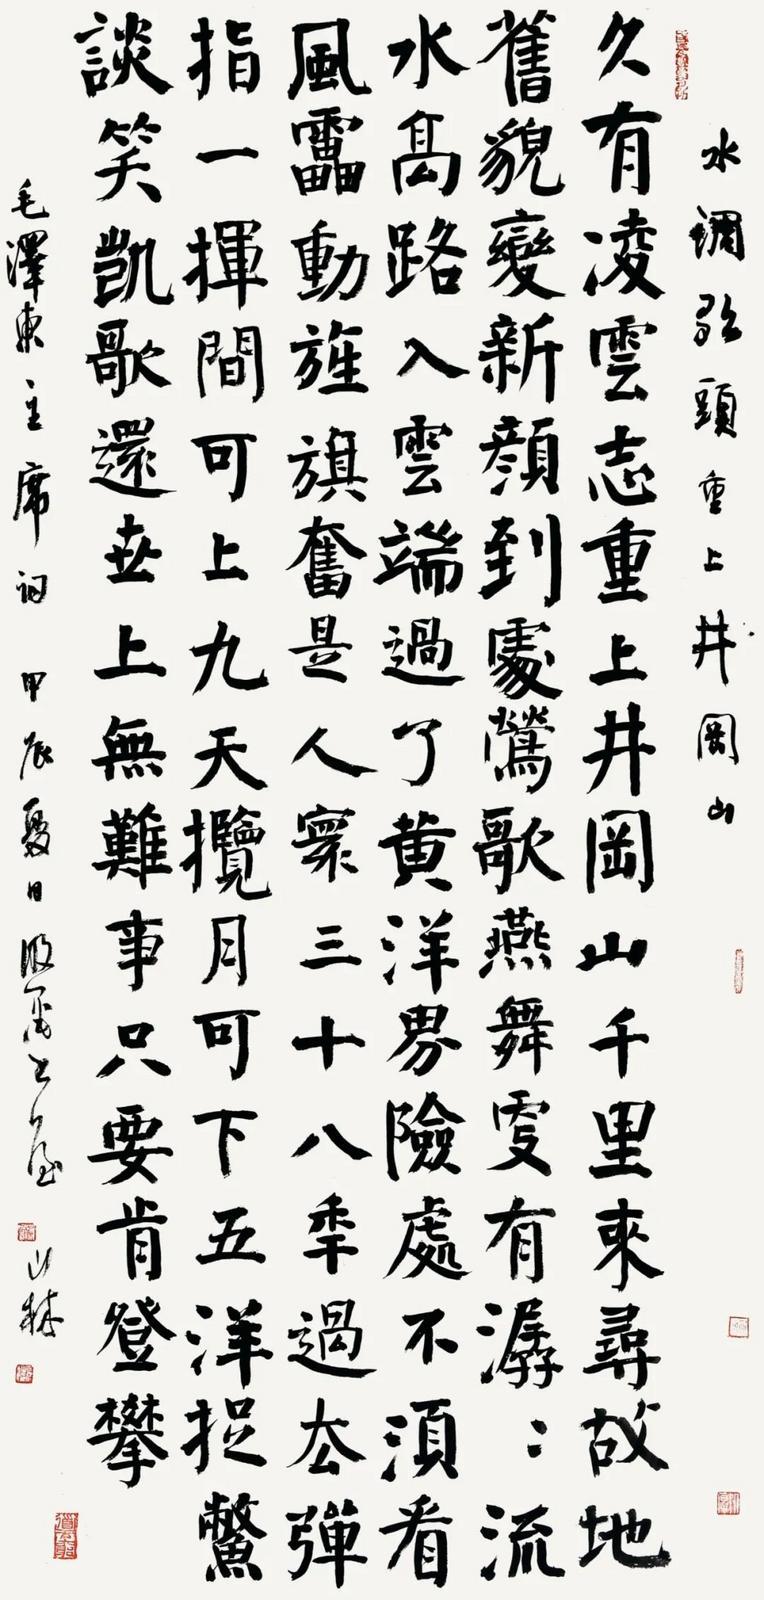 水調歌頭重上井岡山
久有凌雲志重上井岡山千里來尋故地
舊貌變新顏到處鶯歌燕舞更有潺〻流
水高路入雲端過了黄洋界險處不須看
風靁動旌旗奮是人寰三十八秊過去彈
指一揮間可上九天攬月可下五洋捉鱉
談笑凱歌還世上無難事只要肯登攀
毛澤東主席詞甲辰夏日
山林